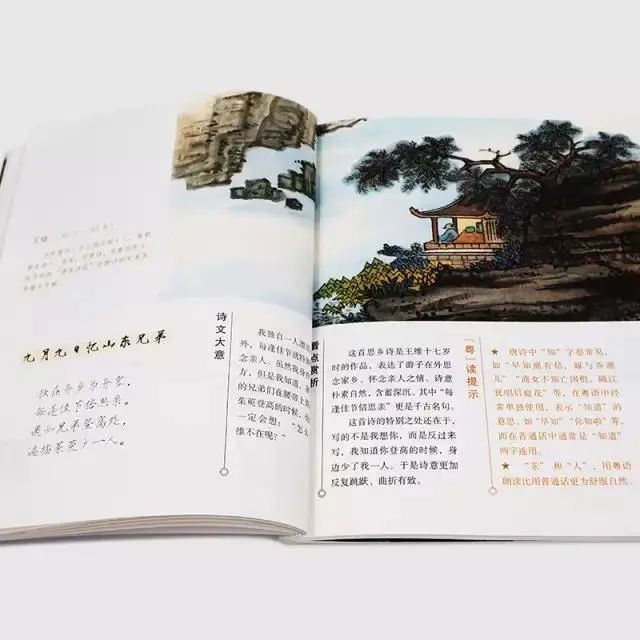 王维
九月九日忆山东兄弟
独在异乡为异客，
每逢佳节倍思亲。
遥知兄弟登高处，
遍插茱萸少一人。
诗文大意
我独自一人
外，每逢佳节就特
念亲人。虽然我身
方，但是我知道，
的兄弟们在腰带上
茱萸登高的时候，
一定会想：“怎么
维不在呢？”
看点赏析
这首思乡诗是王维十七岁
时的作品，表达了游子在外思
念家乡、怀念亲人之情。诗意
朴素自然，含蓄深沉。其中“每
逢佳节倍思亲”更是千古名句。
这首诗的特别之处还在于，
写的不是我想你，而是反过来
写，我知道你登高的时候，身
边少了我一人。于是诗意更加
反复跳跃、曲折有致。
「粤」读提示
★ 唐诗中“知”字很常见，
如“早知潮有信，嫁与弄潮
儿”“商女不知亡国恨，隔江
犹唱后庭花”等，在粤语中经
常单独使用，表示“知道”的
意思，如“早知”“你知啦”等，
而在普通话中通常是“知道”
两字连用。
★ “亲”和“人”，用粤语
朗读比用普通话更为舒服自然。